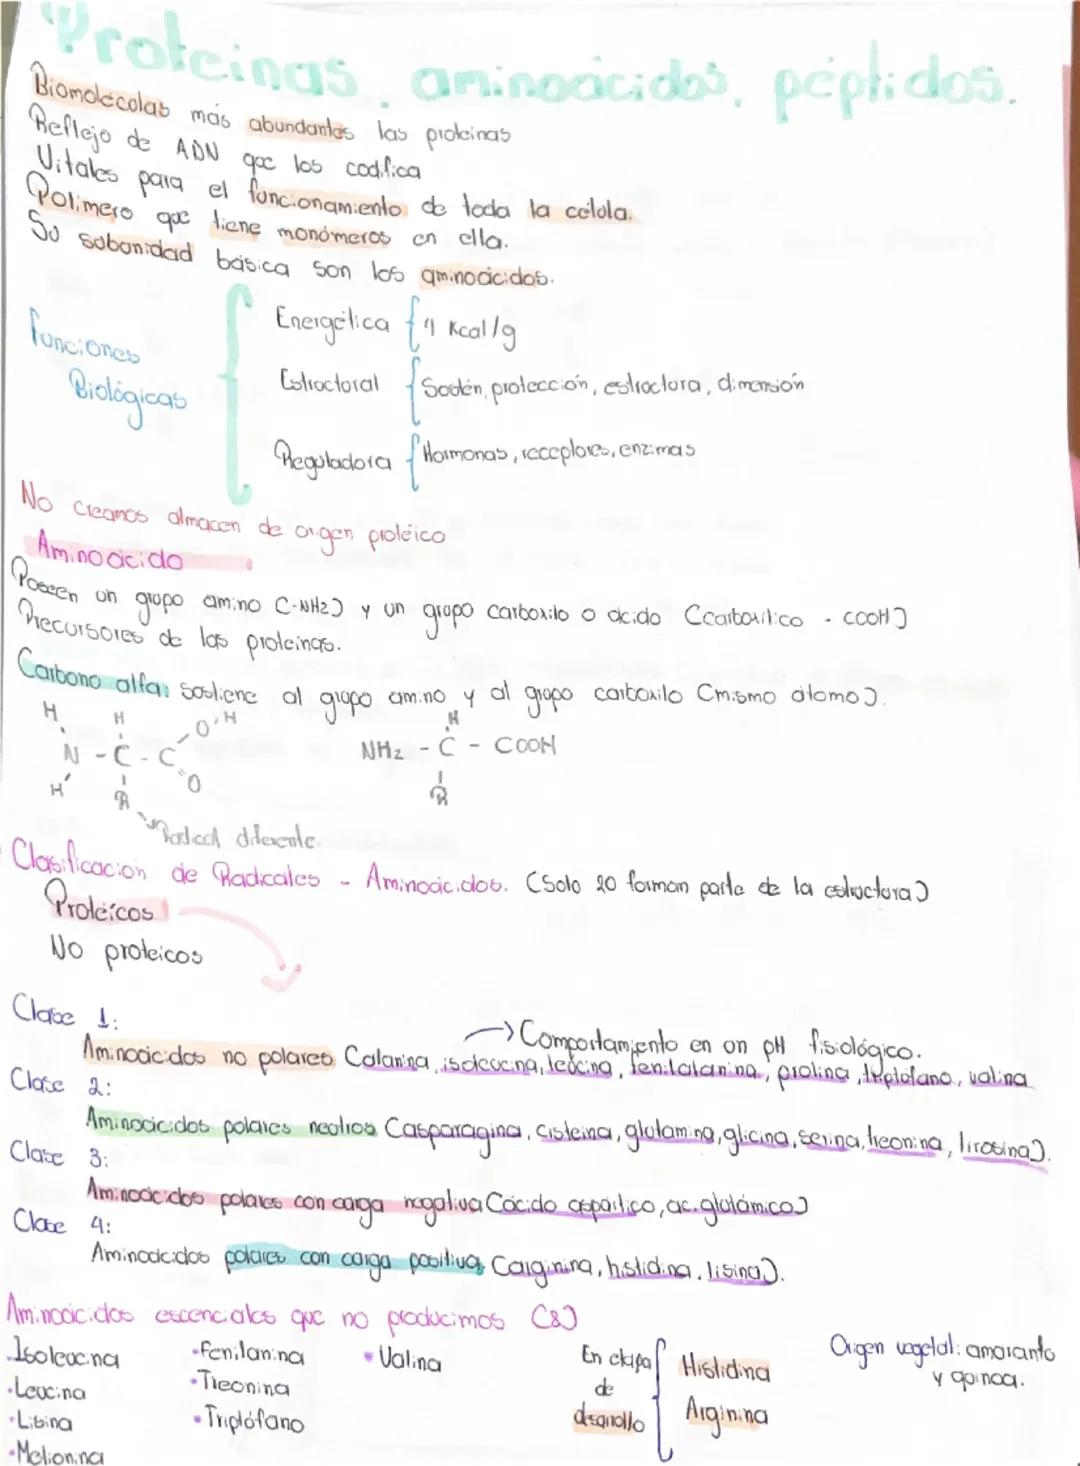 Proteinas, aminoácidos, péptidos.
Biomolécolas más abundantes las proteinas
Reflejo de ADN que los codifica
Vitales para el funcionamiento de toda la célula.
Polimero que tiene monómeros en ella.
Su subunidad básica son los aminoácidos.
Funciones Biológicas
Energética { 4 Kcal/g
Estructoral { Sostén, protección, estructura, dimensión
Reguladora { Hormonas, receptores, enzimas
No creamos almacen de origen protéico
Aminoácido
Poseen un grupo amino (-NH2) y un grupo carboxilo o ácido (carboxilico - COOH)
Precursores de las proteinas.
Carbono alfa: sostiene al grupo amino y al grupo carboxilo (mismo átomo).
H H O-H H
N - C - C NH2 - C - COOH
H R O R
Radical diferente.
Clasificación de Radicales - Aminoácidos. (Solo 20 forman parte de la estructura)
Protéicos
No proteicos
Clase 1: → Comportamiento en un pH fisiológico.
Aminoácidos no polares (alanina, isoleucina, leucina, fenilalanina, prolina, triptófano, valina
Clase 2:
Aminoácidos polares neutros (asparagina, cisteina, glutamina, glicina, serina, treonina, tirosina).
Clase 3:
Aminoácidos polares con carga negativa (ácido aspártico, ac. glutámico)
Clase 4:
Aminoácidos polares con carga positiva (arginina, histidina, lisina).
Aminoácidos escenciales que no producimos (8)
·Isoleucina ·Fenilanina ·Valina En etapa de desarrollo { Histidina Origen vegetal: amaranto y quinoa.
·Leucina ·Treonina Arginina
·Lisina ·Triptófano
·Metionina